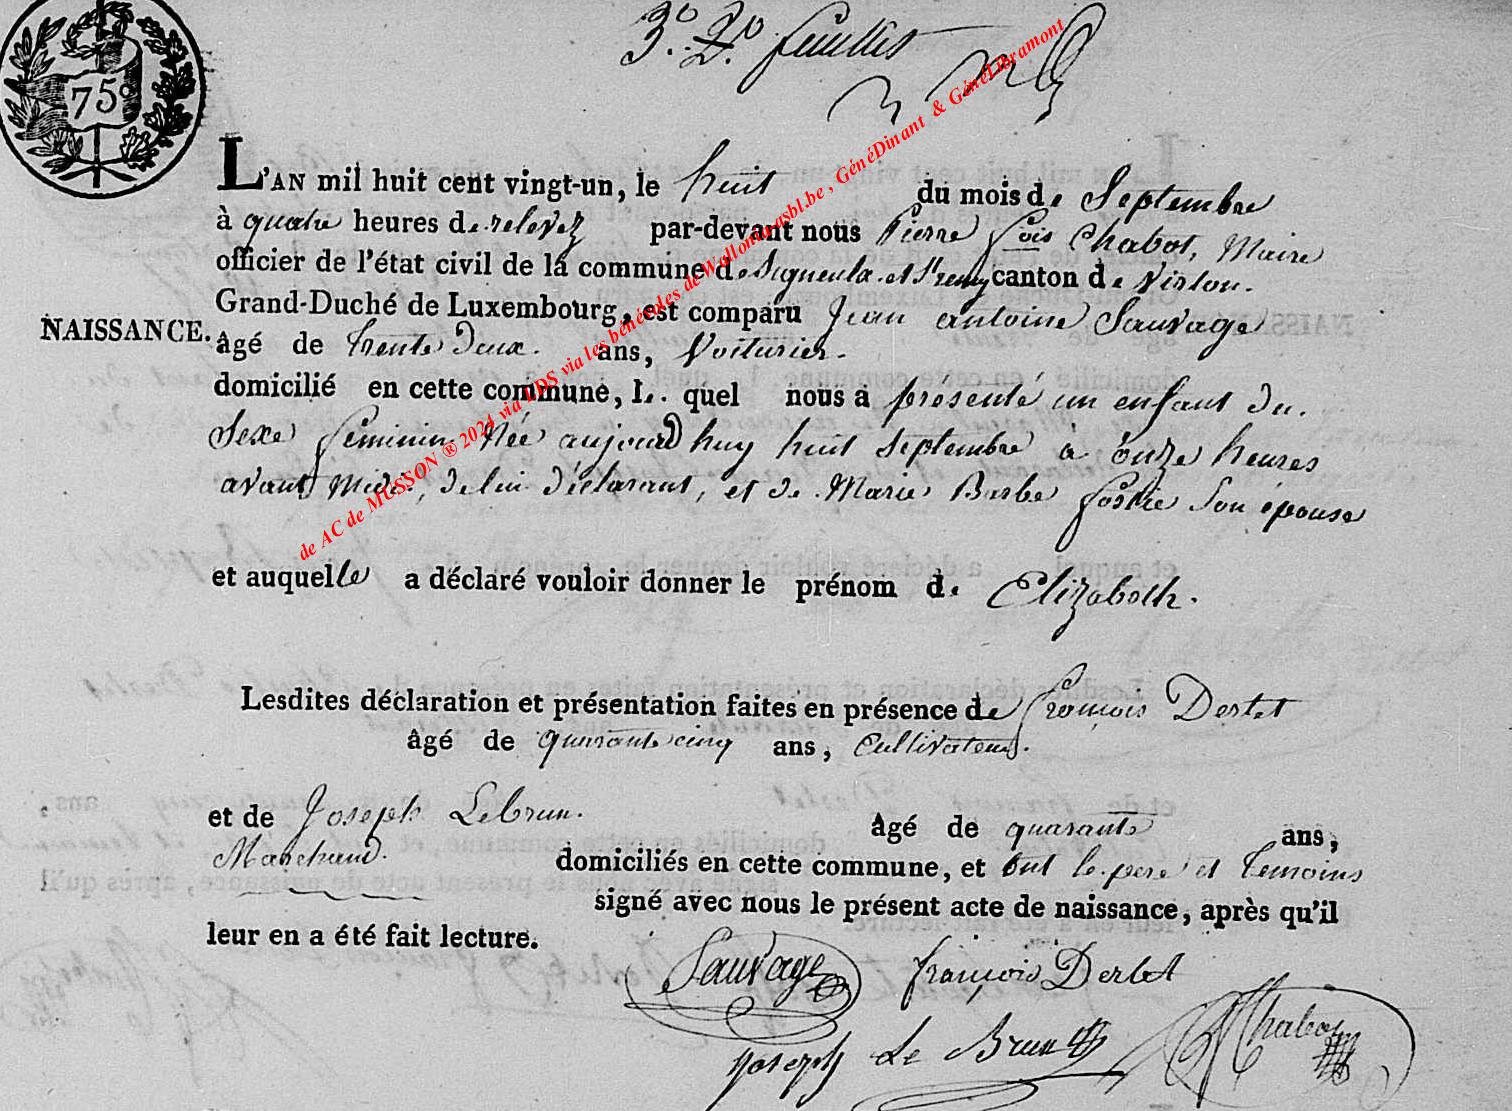 3.º 2.º feuillet
75 c
L'AN mil huit cent vingt-un, le huit du mois de Septembre
à quatre heures de relevez par-devant nous Pierre Lois Chabot, Maire
officier de l'état civil de la commune de Signeulx et St remy canton de Virton.
Grand-Duché de Luxembourg, est comparu Jean antoine Sauvage
NAISSANCE.
âgé de trente Deux. ans, Voiturier.
domicilié en cette commune, Le. quel nous a présenté un enfant du.
Sexe féminin Née aujourd huy huit septembre à onze heures
avant Midi, de lui déclarant, et de Marie Barbe fostie Son épouse
et auquelle a déclaré vouloir donner le prénom de Elizabeth.
Lesdites déclaration et présentation faites en présence de François Dertet
âgé de quarante cinq ans, Cultivateur.
et de Joseph Lebrun. âgé de quarante ans,
Marchand. domiciliés en cette commune, et ont le pere et temoins
signé avec nous le présent acte de naissance, après qu'il
leur en a été fait lecture.
Sauvage françois Dertet
Joseph Le Brun Chabot
de AC de MUSSON ® 2024 via LDS via les bénévoles de Wallonia-asbl.be , GénéDinant & GénéLibramont